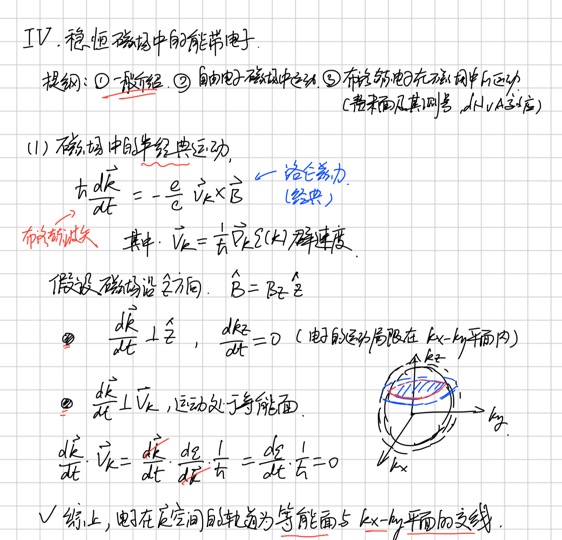 IV. 稳恒磁场中的能带电子.
提纲: ① 一般介绍. ② 自由电子磁场中运动. ③ 布洛赫电子在磁场中的运动
(费米面及其测量, dHvA效应)
(1) 磁场中的半经典运动.
ħ dk⃗/dt = -e/c v⃗_k × B⃗ ← 洛仑兹力 (经典)
布洛赫波矢 其中. v⃗_k = 1/ħ ∇⃗_k ε(k) 群速度.
假设磁场沿ẑ方向. B̂ = Bz ẑ
dk⃗/dt ⊥ ẑ , dkz/dt = 0 (电子的运动局限在 kx-ky平面内)
dk⃗/dt ⊥ v⃗_k , 运动处于等能面.
dk⃗/dt · v⃗_k = dk⃗/dt · dε/dk⃗ · 1/ħ = dε/dt · 1/ħ = 0
kz
ky
kx
✓ 综上, 电子在k空间的轨道为等能面与 kx-ky平面的交线.